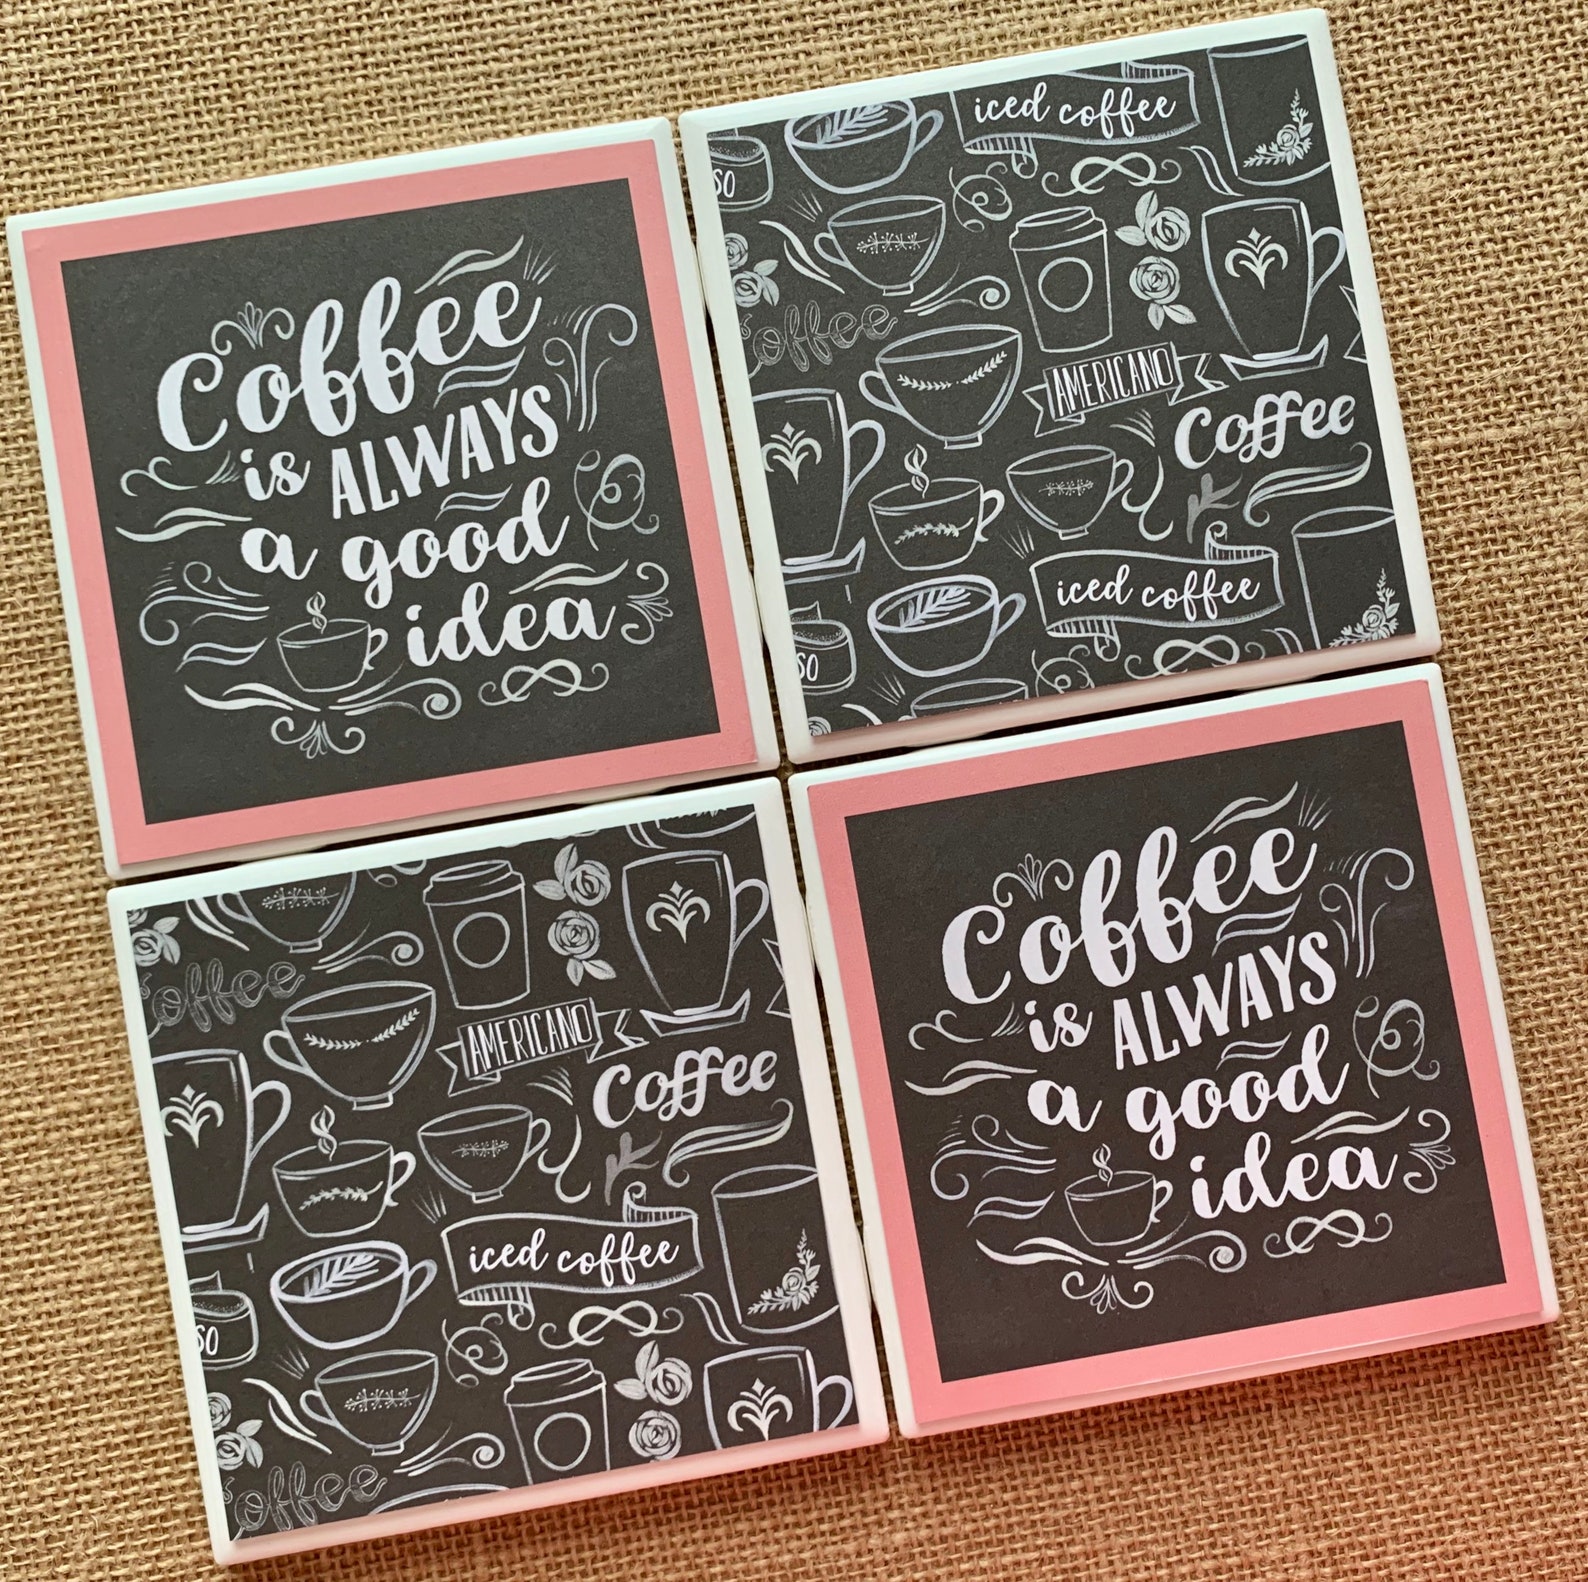 Coffee
is ALWAYS
a good
idea
iced coffee
SO
Coffee
AMERICANO
Coffee
iced coffee
SO
Coffee
AMERICANO
Coffee
iced coffee
SO
Coffee
Coffee
is ALWAYS
a good
idea